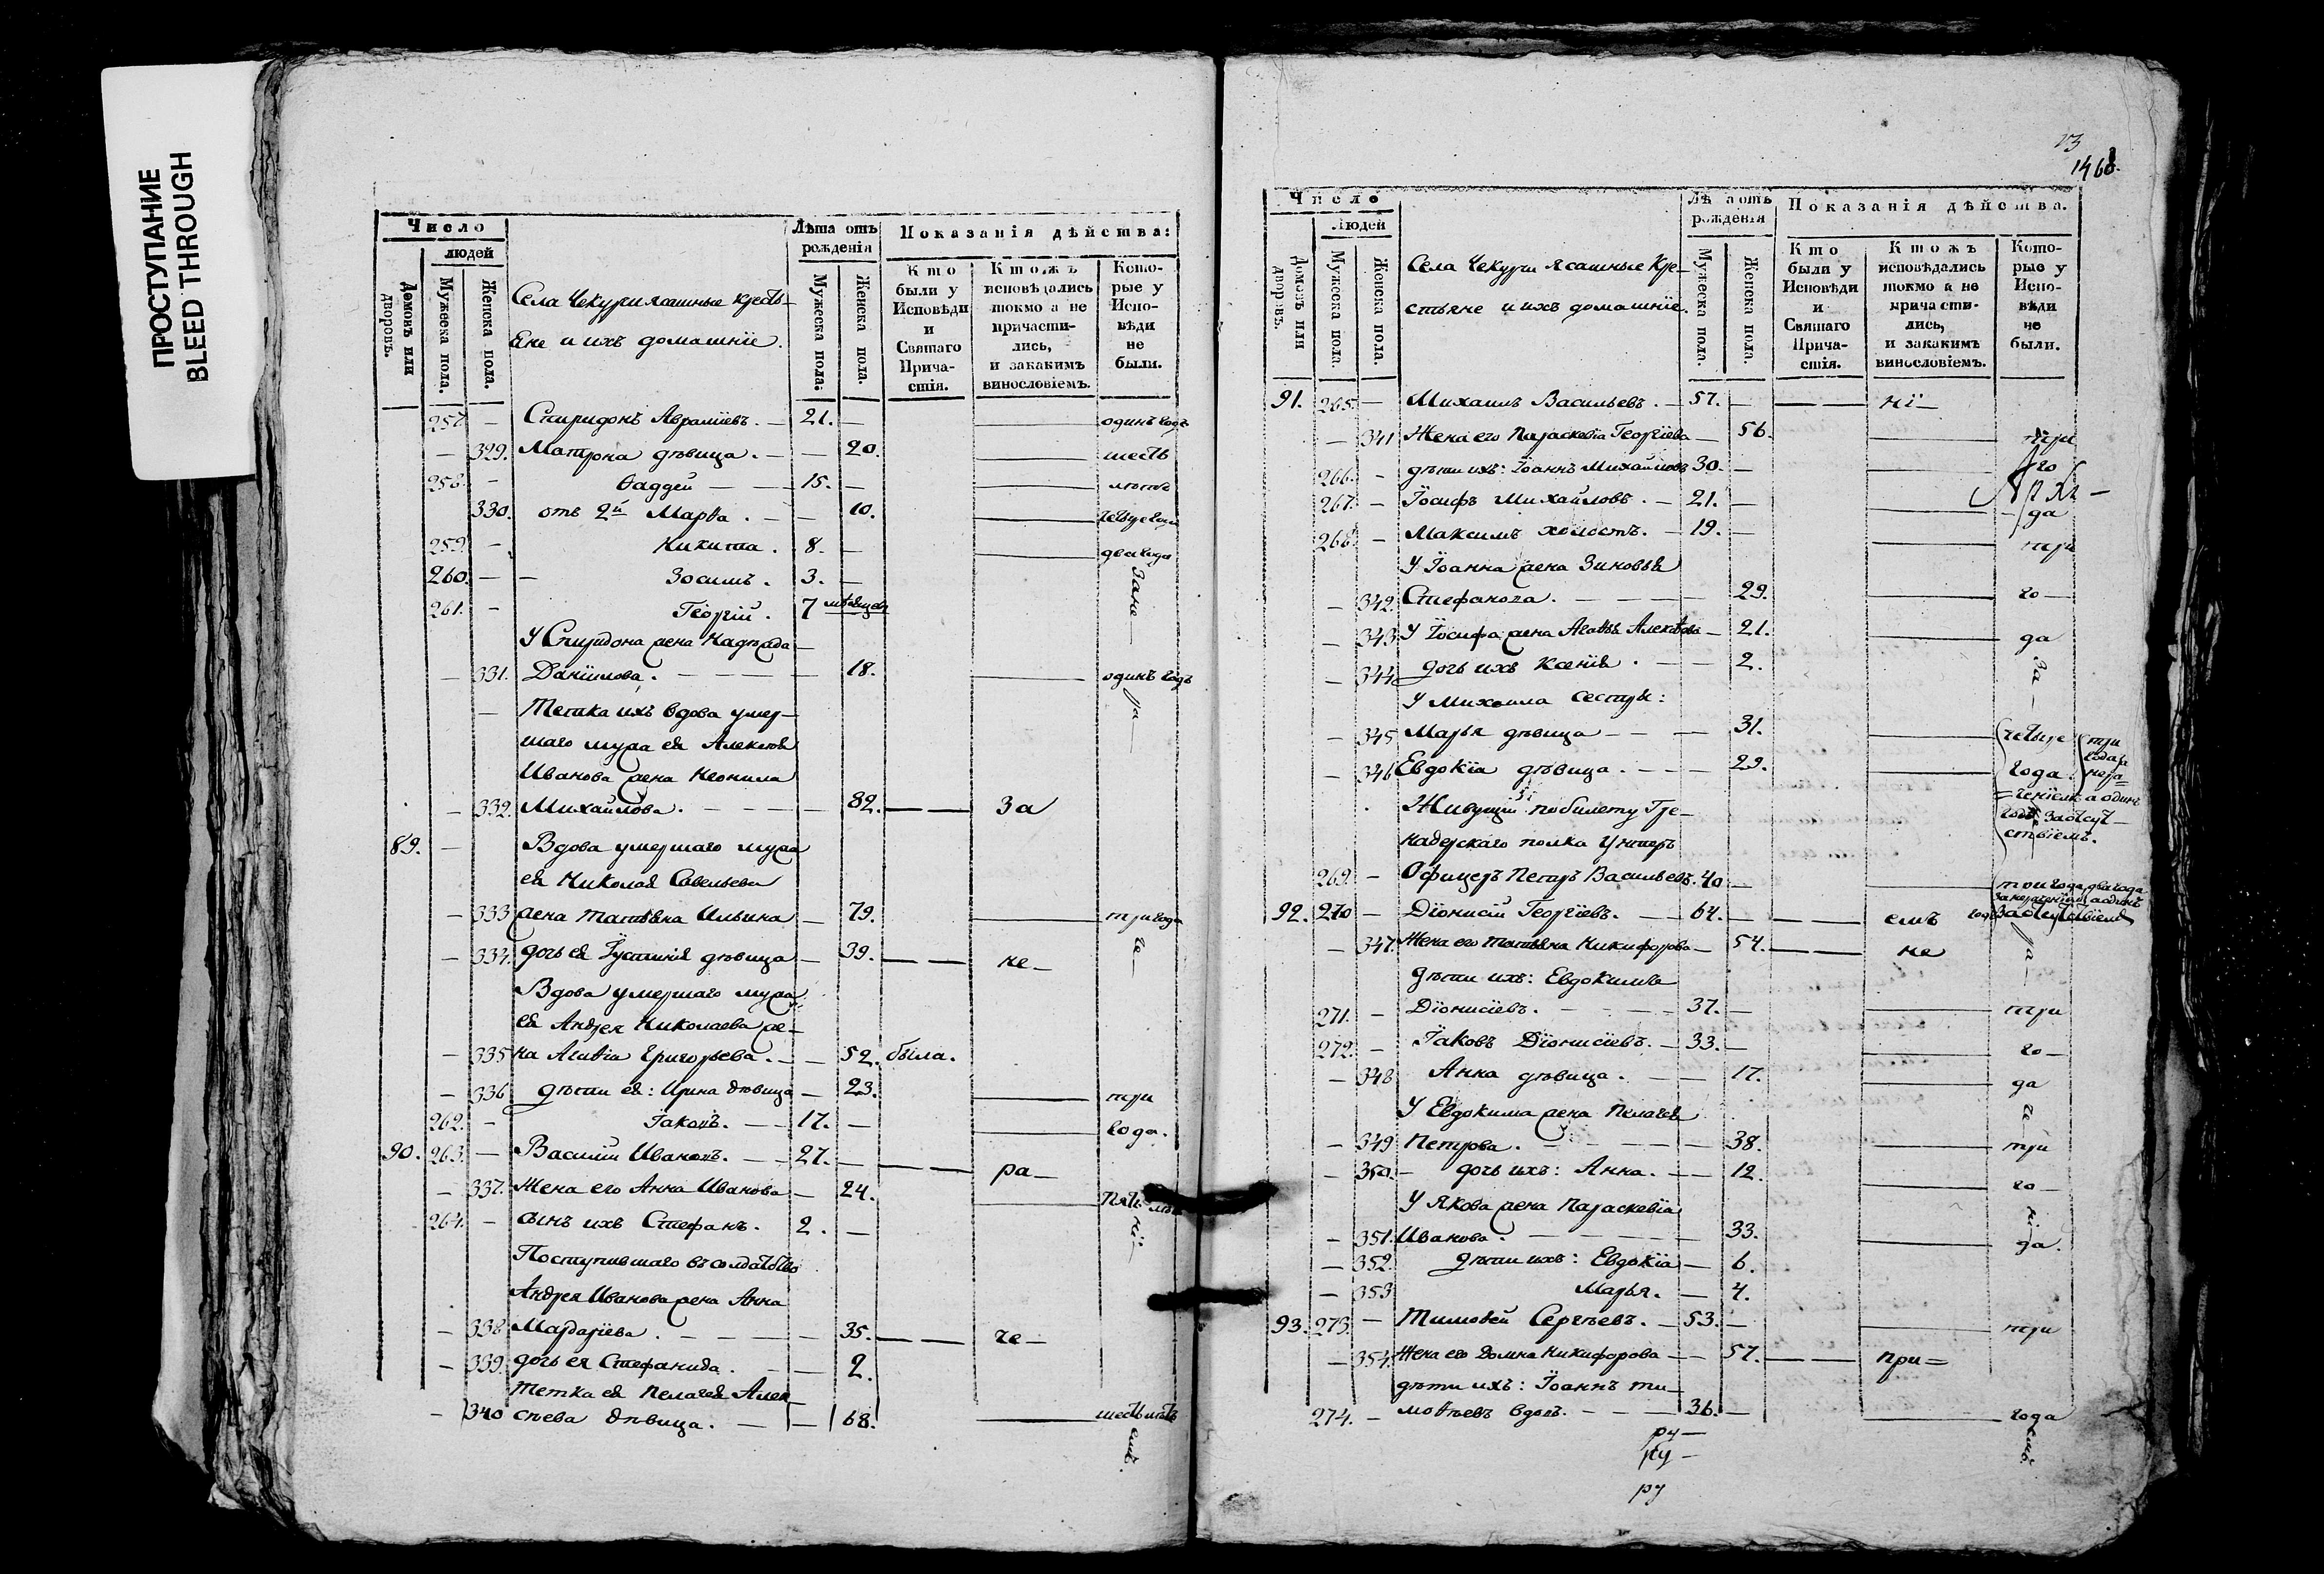 ПРОСТУПАНИЕ
BLEED THROUGH
Число
людей
Домовъ или дворовъ.
Мужеска пола.
Женска пола.
Села Чекури ясашные кресть-
яне и ихъ домашніе.
Лѣта отъ рожденія
Мужеска пола.
Женска пола.
Показанія дѣйства:
Кто были у Исповѣди и Святаго Прича-стія.
Ктожъ исповѣдались токмо а не причасти-лись, и закакимъ винословіемъ.
Кото-рые у Испо-вѣди не были.
257. — Спиридонъ Авраміевъ. — 21. — одинъ годъ
— 329. Матрона дѣвица. — — 20. шесть
258. — Ѳаддей — — 15. — лѣтъ
330. отъ 2й Марѳа. — — 10.
259. — Никита. 8. — два года
260. — — Зосимъ. 3. —
261. — Георгій. 7 мѣсяцевъ
Зане—
У Спиридона жена Надежда
— 331. Даніилова. — — — 18. одинъ годъ
ра—
— Тетка ихъ вдова умер—
шаго мужа ея Алексѣя
Иванова жена Неонила
— 332. Михайлова. — — — 82. — — За
89. — Вдова умершаго мужа
ея Николая Савельева
— 333 жена Татьяна Ильина — 79. три года
— 334. дочь ея Іустинія дѣвица — 39. — — не—
че—
Вдова умершаго мужа
ея Андрея Николаева же—
— 335 на Агаѳія Григорьева. — — 52. была.
— 336 дѣти ея: Ирина дѣвица — 23. три
262. — Іаковъ. — — 17. — года.
90. 263. — Василій Ивановъ. — — 27. — — — ра—
— 337. Жена его Анна Иванова — 24.
264. — сынъ ихъ Стефанъ. 2. —
ні—
Поступившаго въ солдатство
Андрея Иванова жена Анна
— 338 Мардаріева. — — — 35. — — че—
— 339. дочь ея Стефанида. — 2.
Тетка ея Пелагея Алек—
— 340 сѣева дѣвица. — — 68. шесть лѣтъ
емъ.
13
1468.
Число
Людей
Домовъ или дворовъ.
Мужеска пола
Женска пола.
Села Чекури Ясашные Кре—
стьяне и ихъ домашніе.
Лѣта отъ рожденія
Мужеска пола.
Женска пола.
Показанія дѣйства.
Кто были у Исповѣди и Святаго Прича-стія.
Ктожъ исповѣдались токмо а не причасти-лись, и закакимъ винословіемъ.
Кото-рые у Испо-вѣди не были.
91. 265. — Михаилъ Васильевъ. — 57. — — — ні—
— 341 Жена его Параскевіа Георгіева — 56. три
266. — дѣти ихъ: Іоаннъ Михайловъ 30. — го
267. — Іосифъ Михайловъ. — 21. — да
268. — Максимъ холостъ. — 19. — три
У Іоанна жена Зиновья
— 342. Стефанова. — — — 29. го—
— 343. У Іосифа жена Агаѳья Алексѣева — 21. да
— 344. дочь ихъ Ксенія. — — 2.
За—
У Михаила сестры:
— 345 Марья дѣвица — — — 31. четыре три
— 346 Евдокіа дѣвица. — — — 29. года. года за нера=
=ченіемъ а одинъ
годъ за отсут—
ствіемъ.
Живущій по билету Гре—
надерскаго полка Унтеръ
269. — Офицеръ Петръ Васильевъ. 40 — три года, два года
за нераченіемъ а одинъ
годъ за отсутствіемъ
92. 270 — Діонисій Георгіевъ. — — 64. — — — емъ
— 347. Жена его Татьяна Никифорова — 54. — — не
ра—
дѣти ихъ: Евдокимъ
271. — Діонисіевъ. — — — 37. — три
272. — Іаковъ Діонисіевъ. — 33. — го—
— 348 Анна дѣвица. — — 17. да
че
У Евдокима жена Пелагея
— 349 Петрова. — — — 38. три
— 350. — дочь ихъ: Анна. — — 12. го—
У Якова жена Параскевіа
ні
— 351. Иванова. — — — 33. да.
— 352. дѣти ихъ: Евдокіа — 6.
— 353 Марья. — 4.
93. 273. — Тимоѳей Сергѣевъ. — 53. — три
— 354. Жена его Домна Никифорова — — 57. — — при=
дѣти ихъ: Іоаннъ Ти—
274. — моѳѣевъ вдовъ. — — — 36. — года
емъ.
ру—
ру—
ру